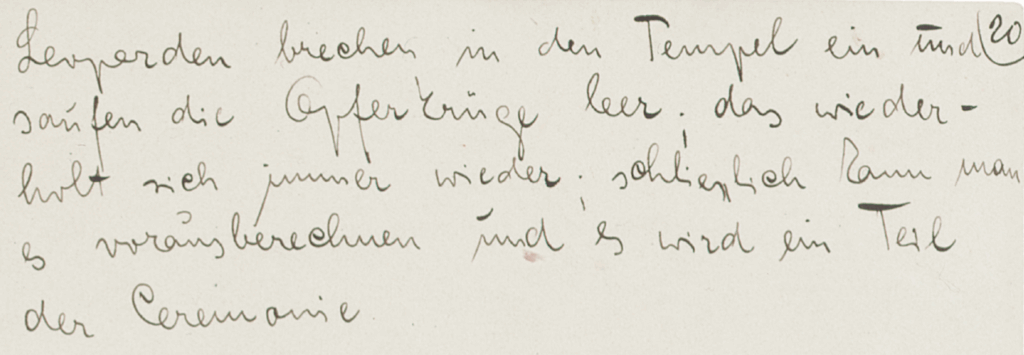 Leoparden brechen in den Tempel ein und 20
saufen die Opferkrüge leer; das wieder-
holt sich immer wieder; schliesslich kann man
es vorausberechnen und es wird ein Teil
der Ceremonie